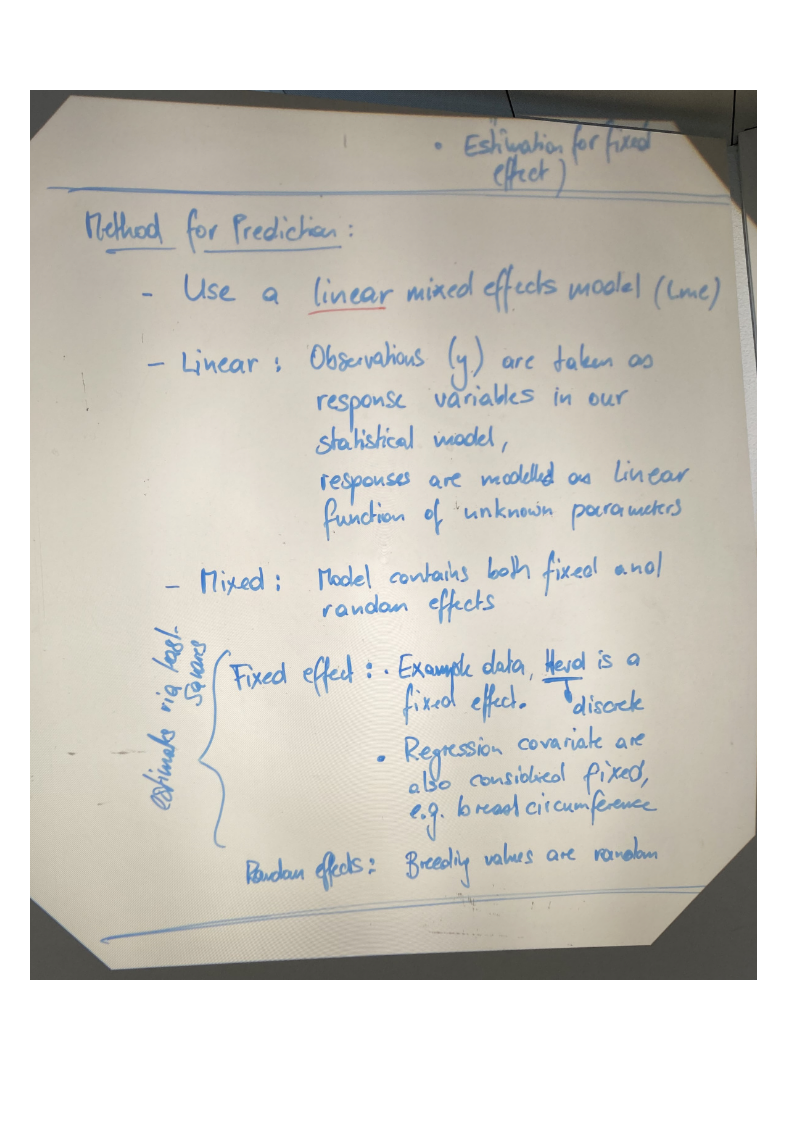 • Estimation for fixed
effect)
Method for Prediction:
- Use a linear mixed effects model (lme)
- Linear: Observations (y) are taken as
response variables in our
statistical model,
responses are modelled as linear
function of unknown parameters
- Mixed: Model contains both fixed and
random effects
estimate via least-
squares
Fixed effect: • Example data, Herd is a
fixed effect. discrete
• Regression covariate are
also considered fixed,
e.g. breast circumference
Random effects: Breeding values are random